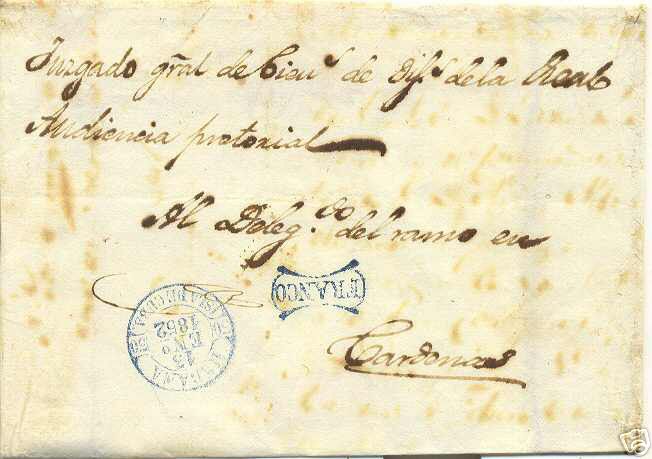 Juzgado gral de bien.s de dif.s de la Real
Audiencia pretorial
Al Deleg.do del ramo en
FRANCO
HABANA
ISLA DE CUBA
ENº
1862
Cardenas